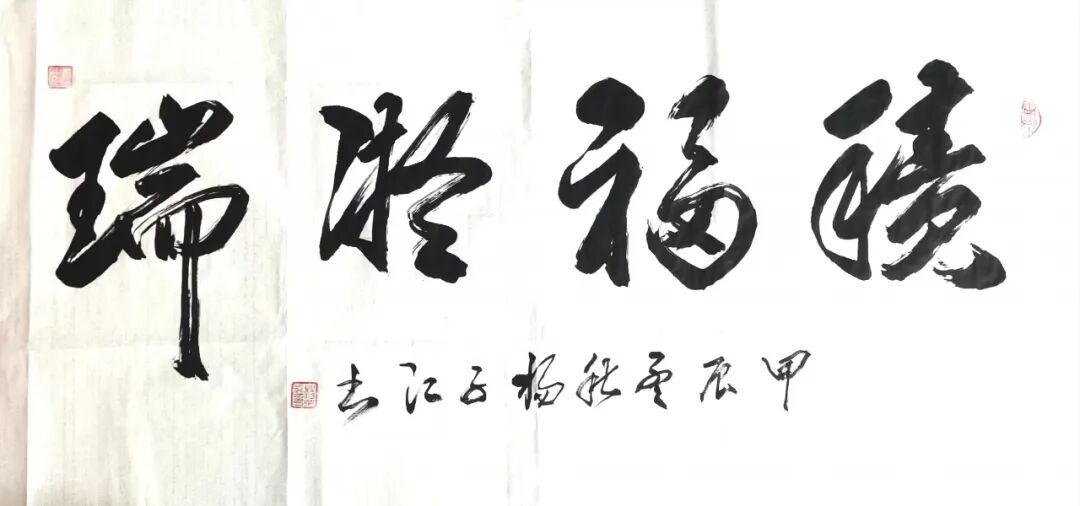 積福凝瑞
甲辰孟秋杨子江书